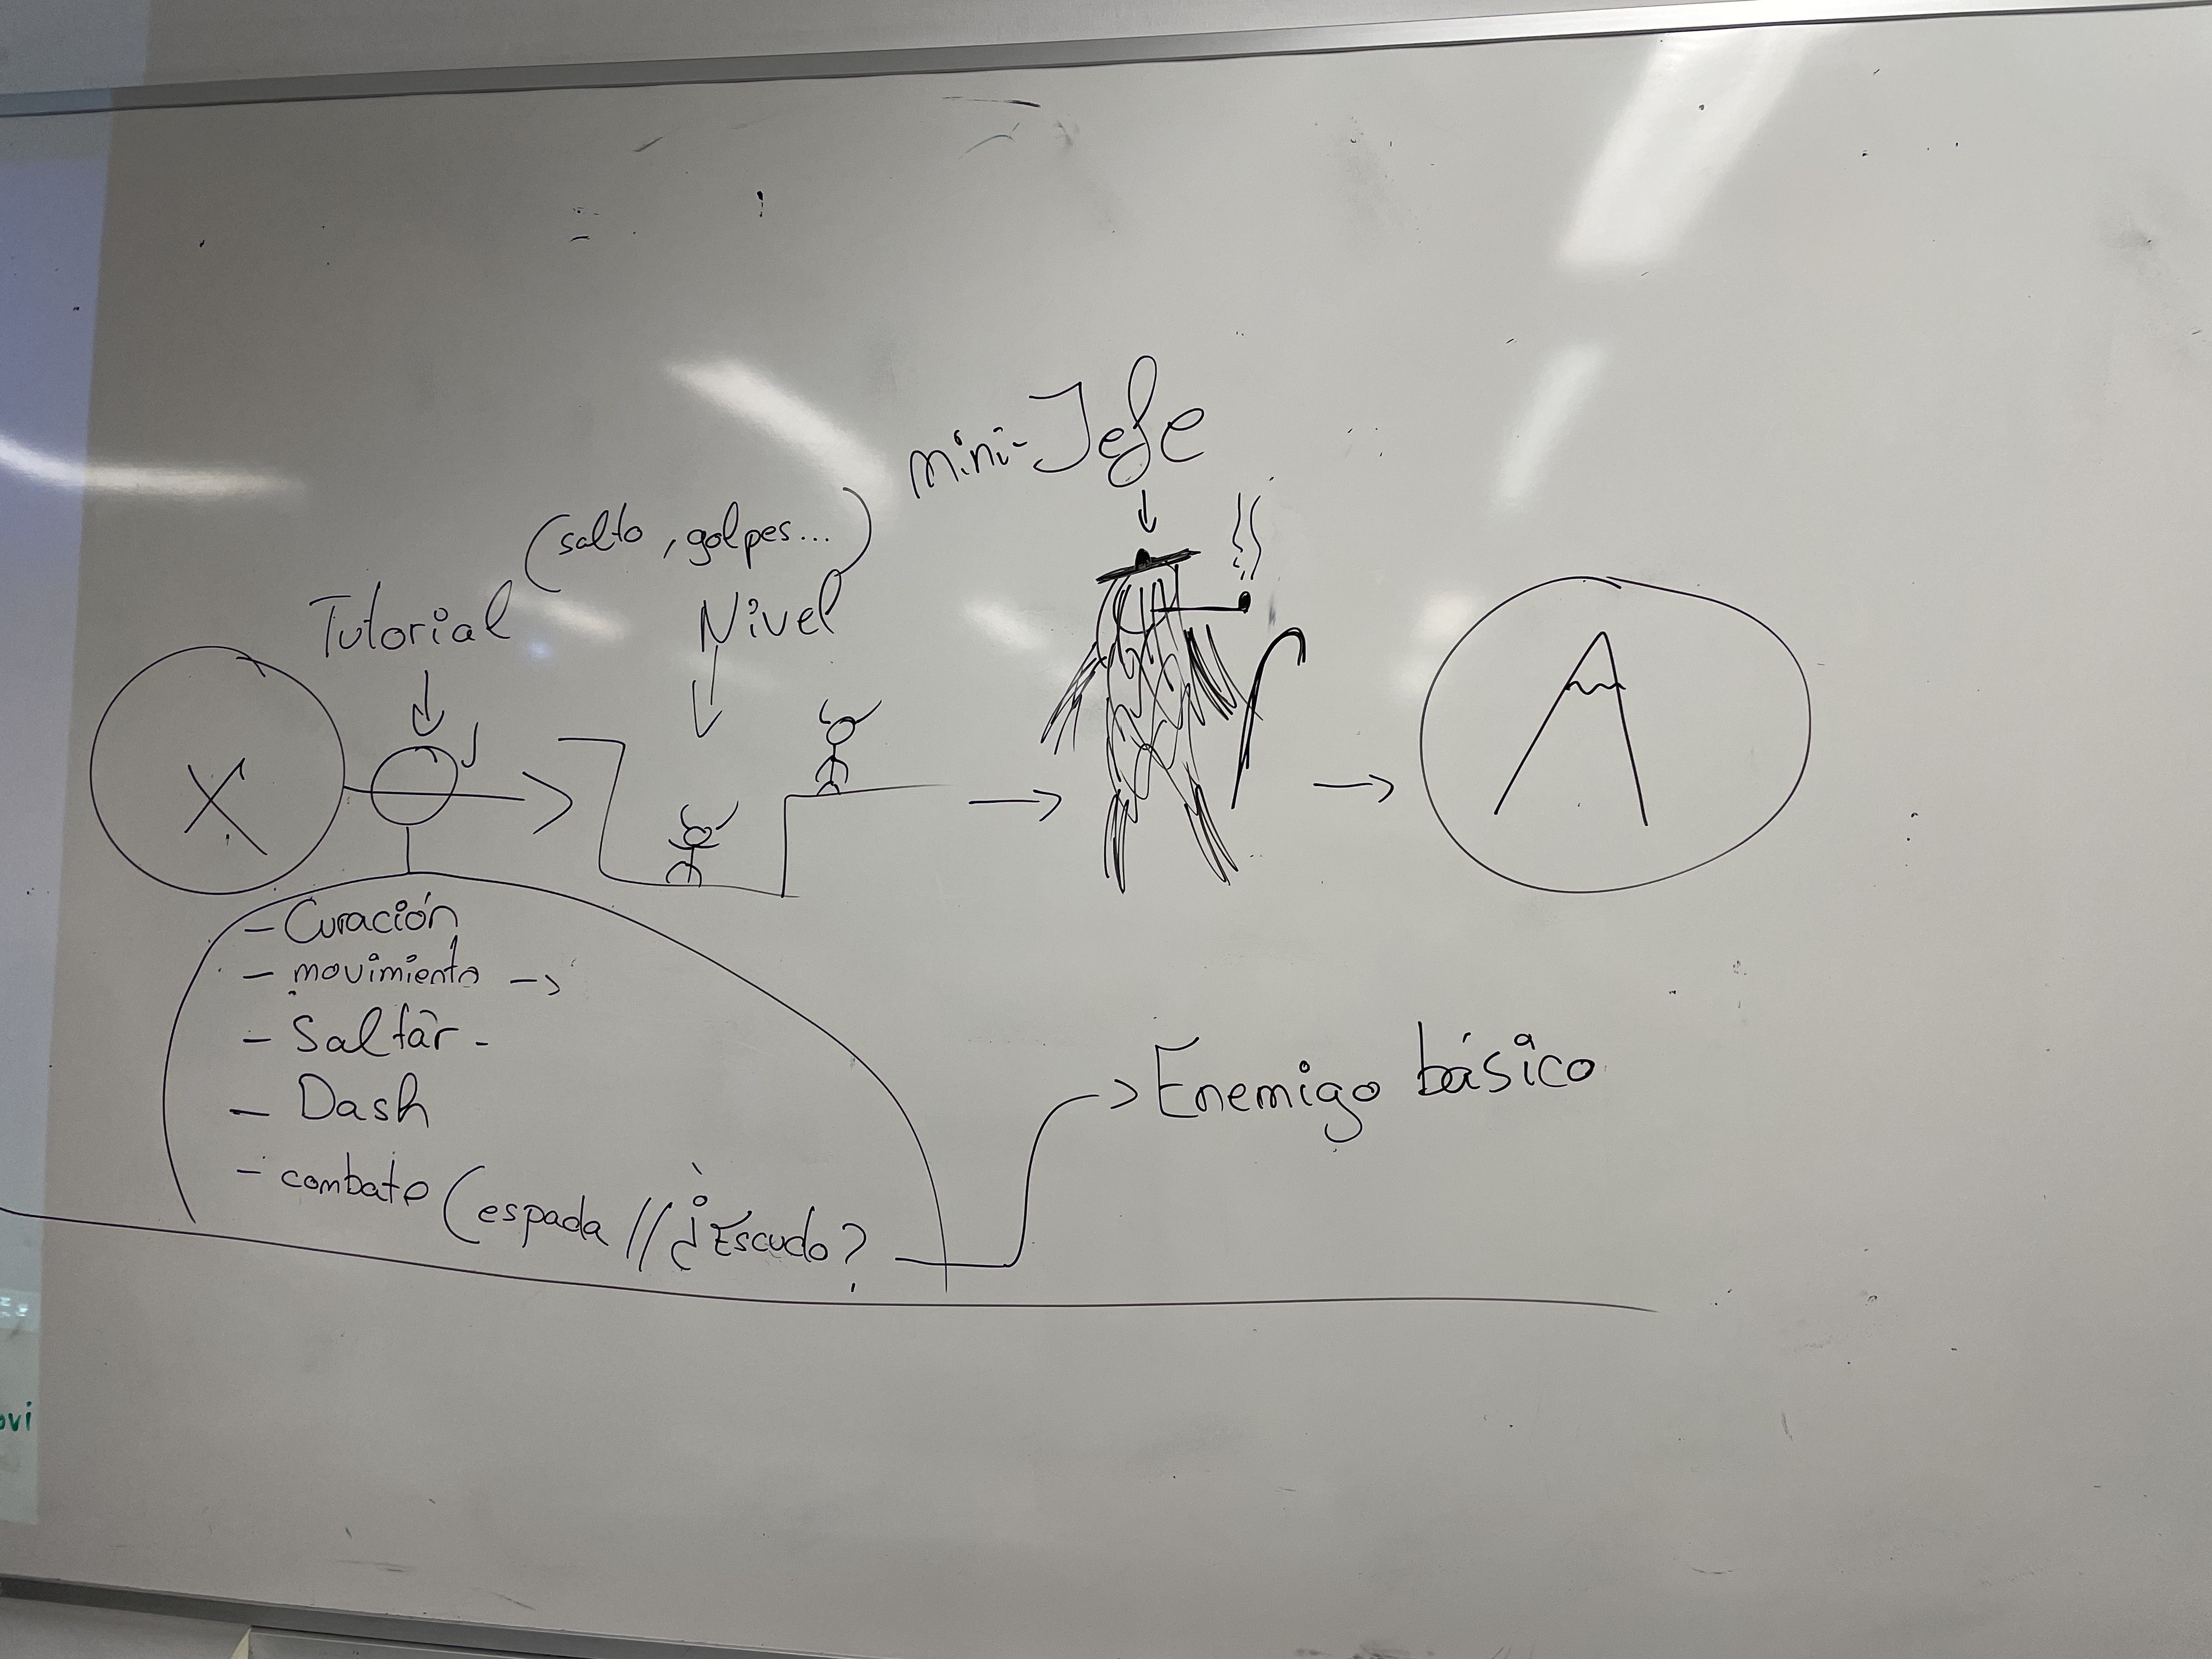 mini-Jefe
(salto, golpes...)
Tutorial
Nivel
X
- Curación
- movimiento ->
- Saltar -
- Dash
- combate (espada // ¿Escudo?
-> Enemigo básico
ovi